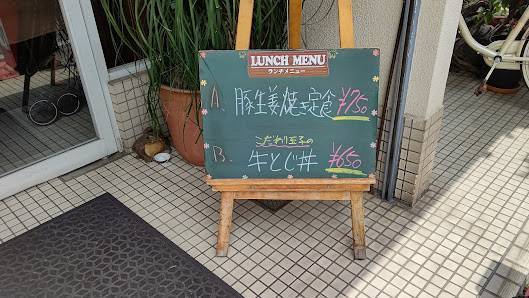 LUNCH MENU
ランチメニュー
A. 豚生姜焼き定食 ¥750
こだわり玉子の
B. 牛とじ丼 ¥650